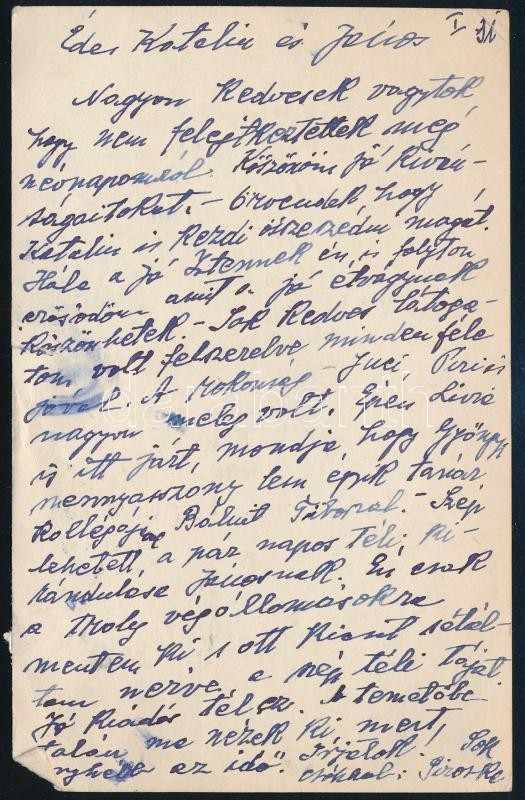 Édes Katalin és János I/31
Nagyon kedvesek vagytok
hogy nem felejtkeztettek meg
névnapomról. Köszönöm jó kíván-
ságaitokat. – Örvendek, hogy
Katalin is kezdi összeszedni magát.
Hála a jó Istennek én is folyton
erősödöm amit a jó étvágynak
köszönhetek. – Sok kedves látoga-
tom volt felszerelve mindenféle
jóval. A rokonság – Juci, Piri
nagyon meleg volt. Édes Lívia
is itt járt, mondja, hogy Gyöngyi
mennyasszony lem egyik tanár
kollégája Bálint Tiborral. – Szép
lehetett a pár napos téli ki-
rándulása Jánosnak. Én csak
a troly végállomásokra
mentem ki s ott kicsit sétál-
tam nézve a szép téli tájat
Jó kiadós tél ez. A temetőbe
talán ma nézek ki mert
enyhébb az idő. Írjatok! Sok
csókkal: Piroska
darabanth